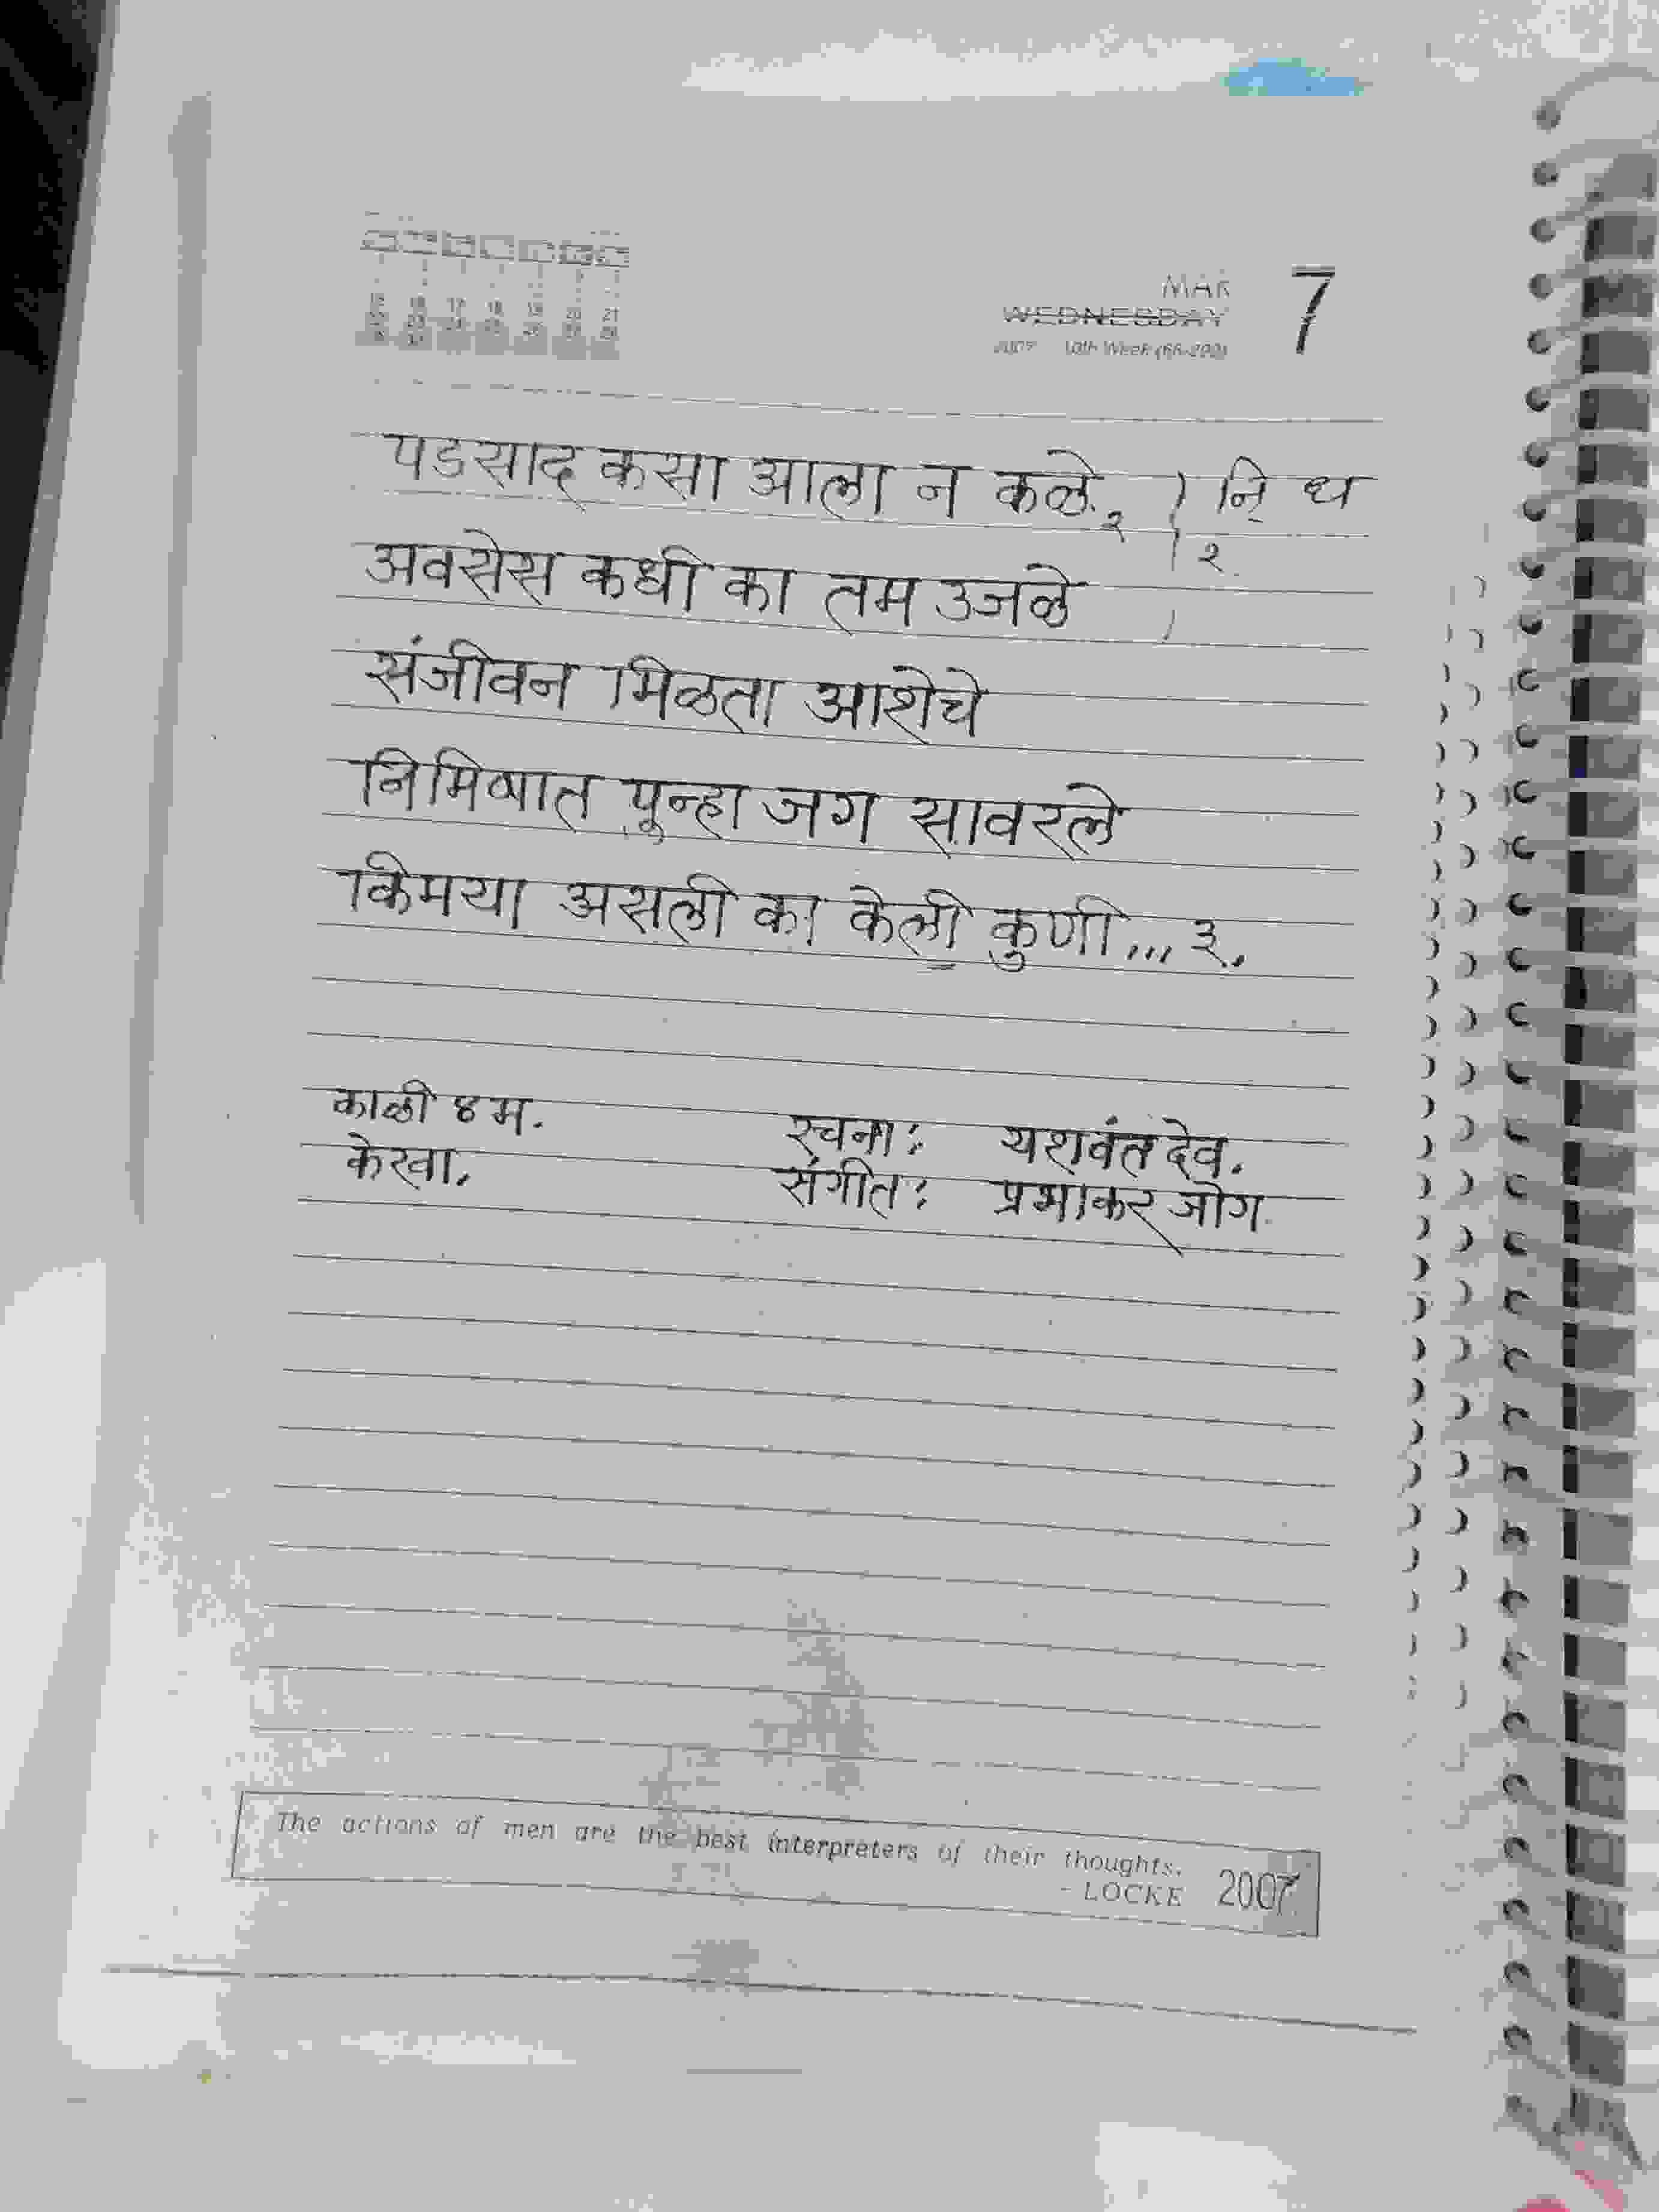 MAR 7
WEDNESDAY
2007 10th Week (66-299)
15 16 17 18 19 20 21
पडसाद कसा आला न कळे. २ ) नि् ध
२
अवसेस कधी का तम उजळे
संजीवन मिळता आशेचे
निमिषात पुन्हा जग सावरले
किमया असली का केली कुणी... ३.
काळी ४ म.
रचना: यशवंत देव.
केरवा.
संगीत: प्रभाकर जोग
The actions of men are the best interpreters of their thoughts.
- LOCKE 2007